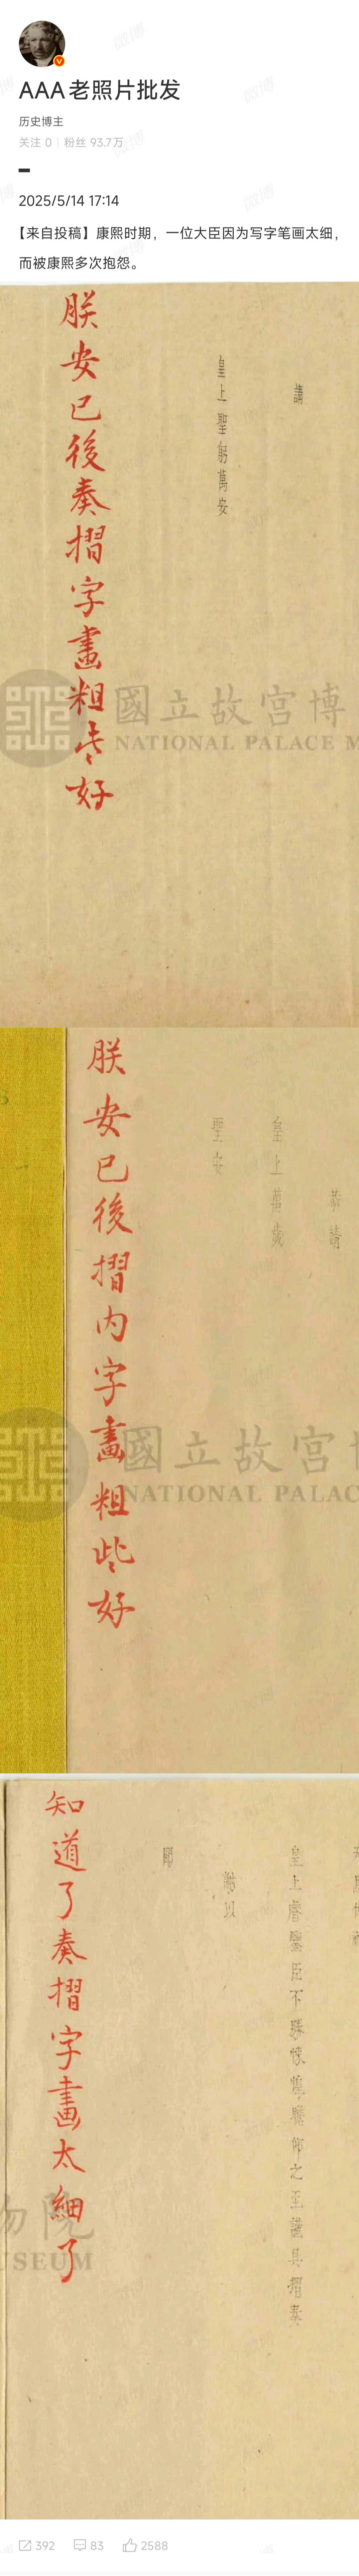 AAA 老照片批发
历史博主
关注 0 | 粉丝 93.7万
2025/5/14 17:14
【来自投稿】康熙时期，一位大臣因为写字笔画太细，
而被康熙多次抱怨。
請
皇上聖躬萬安
朕安已後奏摺字畫粗些好
國立故宮博
NATIONAL PALACE M
恭請
皇上萬歲
聖安
朕安已後摺内字畫粗些好
國立故宮博
NATIONAL PALAC
皇上睿鑒臣不勝悚惶瞻仰之至謹具摺奏
謝以
聞
知道了奏摺字畫太細了
物院
USEUM
392 83 2588